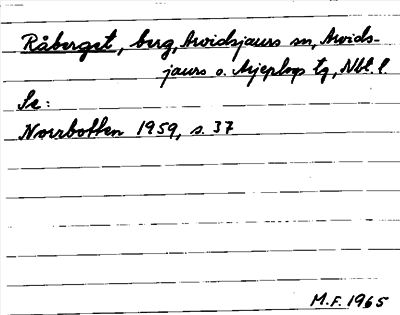 Råberget, berg, Arvidsjaurs sn, Arvids-
jaurs o. Arjeplogs tg, Nbt. l.
Se:
Norrbotten 1959, s. 37
M.F. 1965